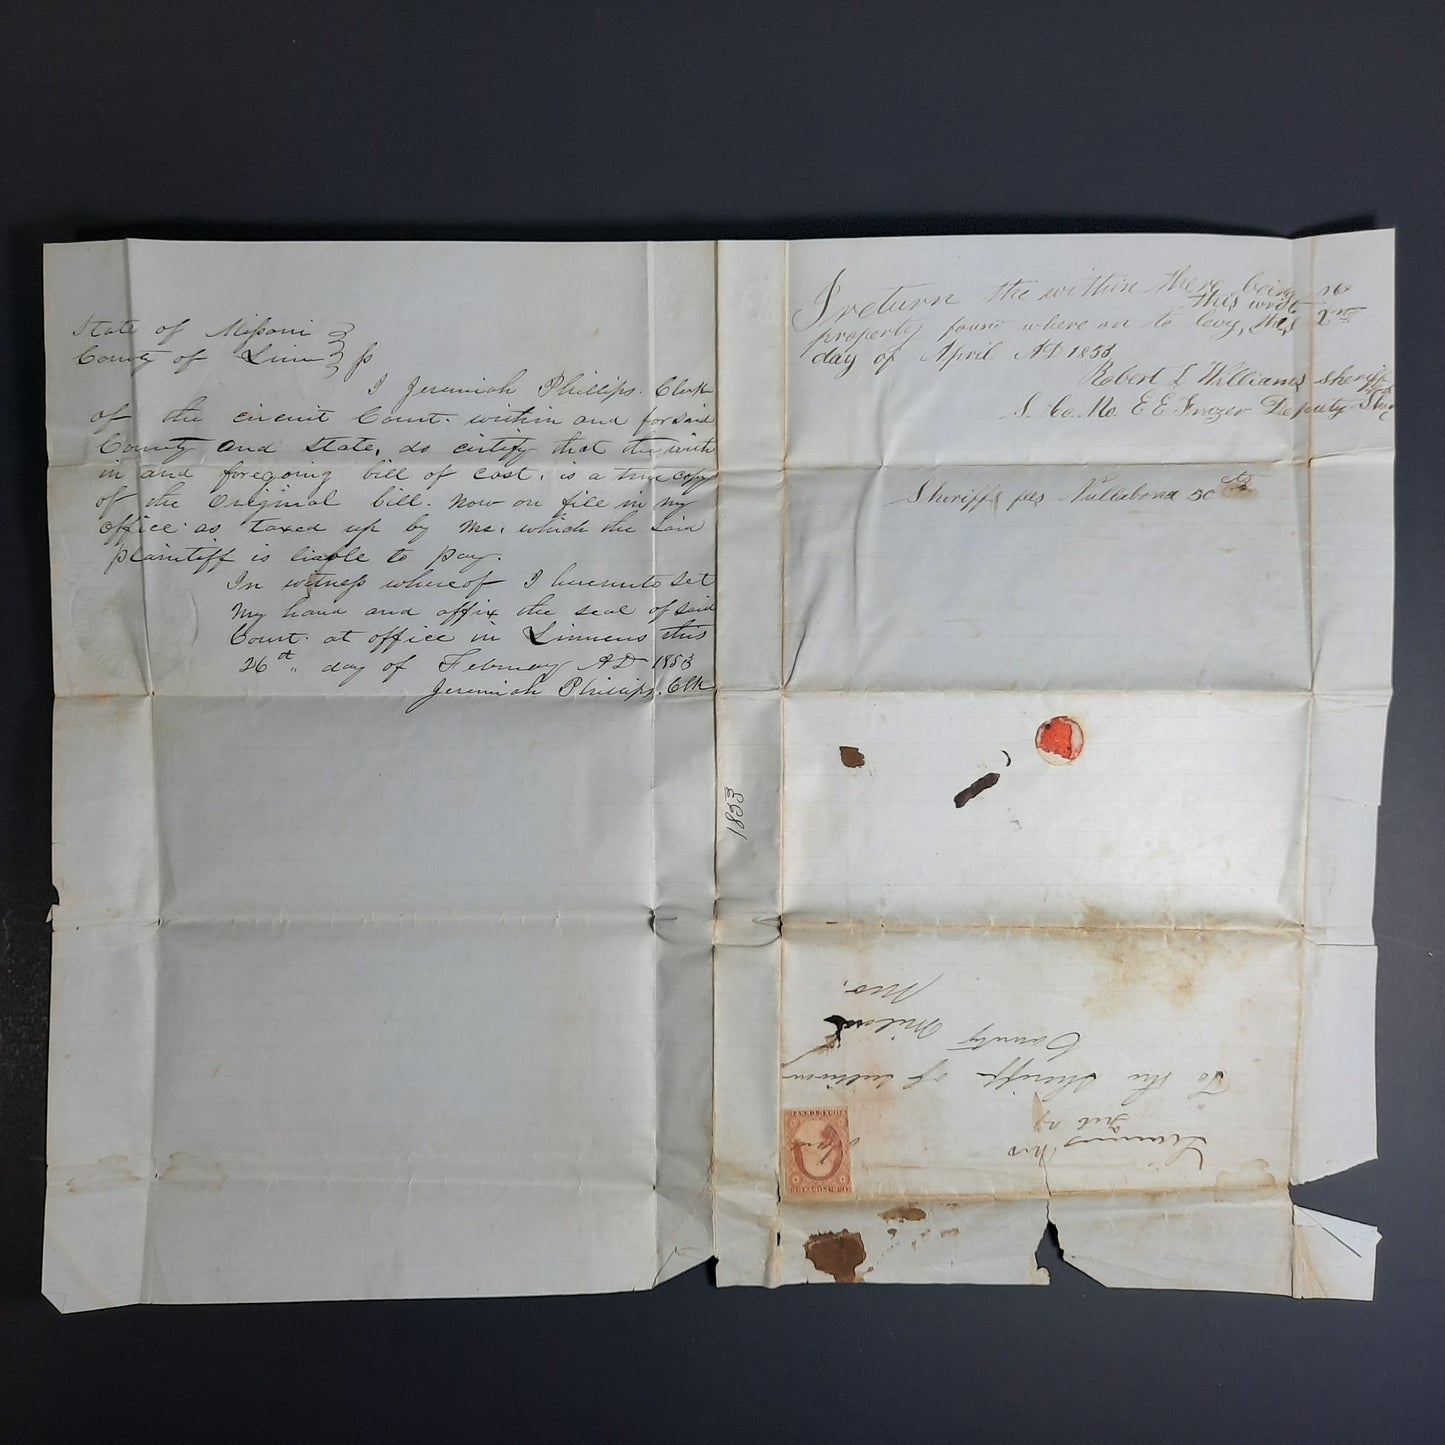 State of Missouri
County of Linn } ss
I Jeremiah Phillips. Clerk
of the circuit Court. within and for said
County and State, do certify that the with
in and foregoing bill of cost, is a true copy
of the Original bill. now on file in my
office. as taxed up by me, which the said
plaintiff is liable to pay.
In witness whereof I hereunto set
My hand and affix the seal of said
Court. at office in Linneus this
26th day of February AD 1853
Jeremiah Phillips. Clk
I return the within there being no
property found where on to levy, this writ this 2nd
day of April AD 1853
Robert L Williams sheriff
S. Co. Mo. E E Frazer Deputy Shff
Sheriffs fees Nullabona 50 cts
1853
Linneus Mo
Feb 27
To the Sheriff of Sullivan
County Milan
Mo.
Paid